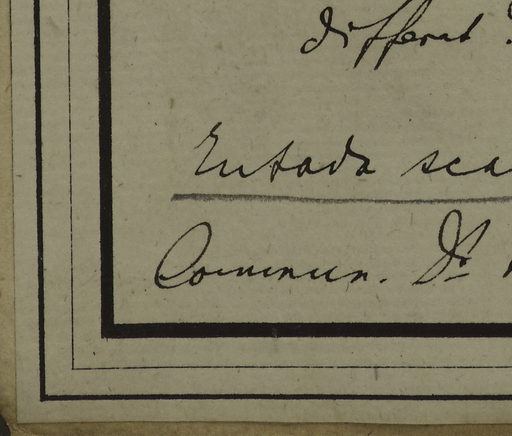 differt
Entada sca
Commun. Dr